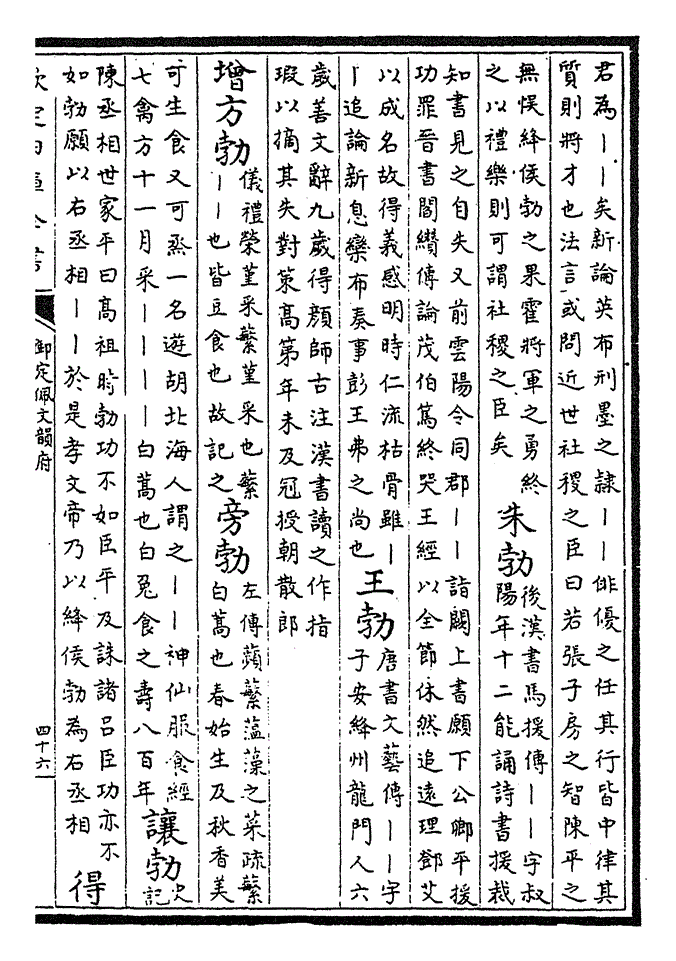 君為｜｜矣新論英布刑墨之隸｜｜俳優之任其行皆中律其
質則將才也法言或問近世社稷之臣曰若張子房之智陳平之
無悮絳侯勃之果霍將軍之勇終
之以禮樂則可謂社稷之臣矣
朱勃
後漢書馬援傳｜｜字叔
陽年十二能誦詩書援裁
知書見之自失又前雲陽令同郡｜｜詣闕上書願下公卿平援
功罪晉書閻纘傳論茂伯篤終哭王經以全節休然追遠理鄧艾
以成名故得義感明時仁流枯骨雖｜
｜追論新息欒布奏事彭王弗之尚也
王勃
唐書文藝傳｜｜字
子安絳州龍門人六
歲善文辭九歲得顏師古注漢書讀之作指
瑕以摘其失對策高第年未及冠授朝散郎
增方勃
儀禮榮菫采蘩菫采也蘩
｜｜也皆豆食也故記之
旁勃
左傳蘋蘩薀藻之菜疏蘩
白蒿也春始生及秋香美
可生食又可烝一名遊胡北海人謂之｜｜神仙服食經
七禽方十一月采｜｜｜｜白蒿也白兔食之壽八百年
讓勃
史
記
陳丞相世家平曰高祖時勃功不如臣平及誅諸呂臣功亦不
如勃願以右丞相｜｜於是孝文帝乃以絳侯勃為右丞相
得
欽定四庫全書
御定佩文韻府
四十六